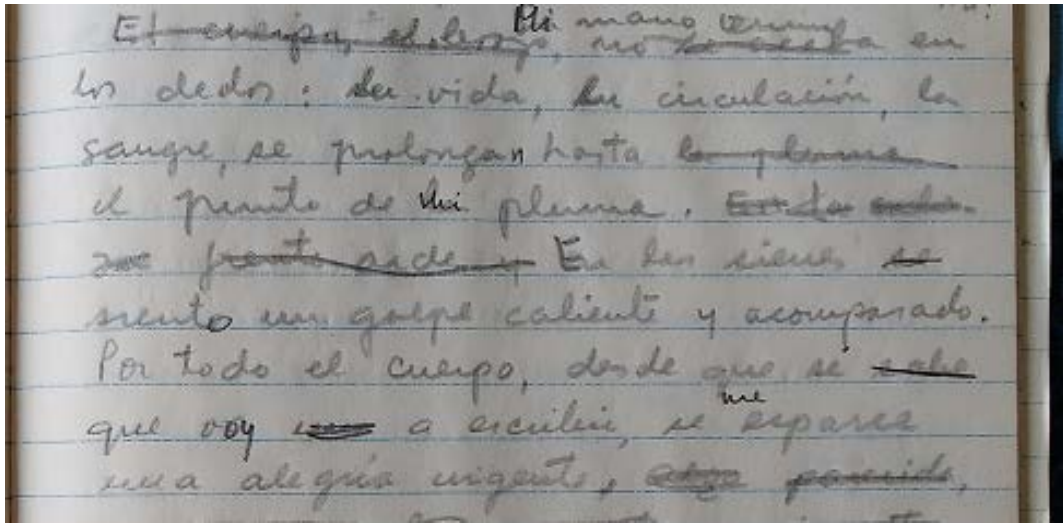 Mi mano termina
El cuerpo, el brazo, no se acaba en
los dedos: su vida, su circulación, la
sangre, se prolongan hasta la pluma
el punto de mi pluma. En la
frente sade y En las sienes se
siento un golpe caliente y acompasado.
Por todo el cuerpo, desde que sé sabe
que voy a escribir, se me esparce
una alegría urgente, algo parecido,